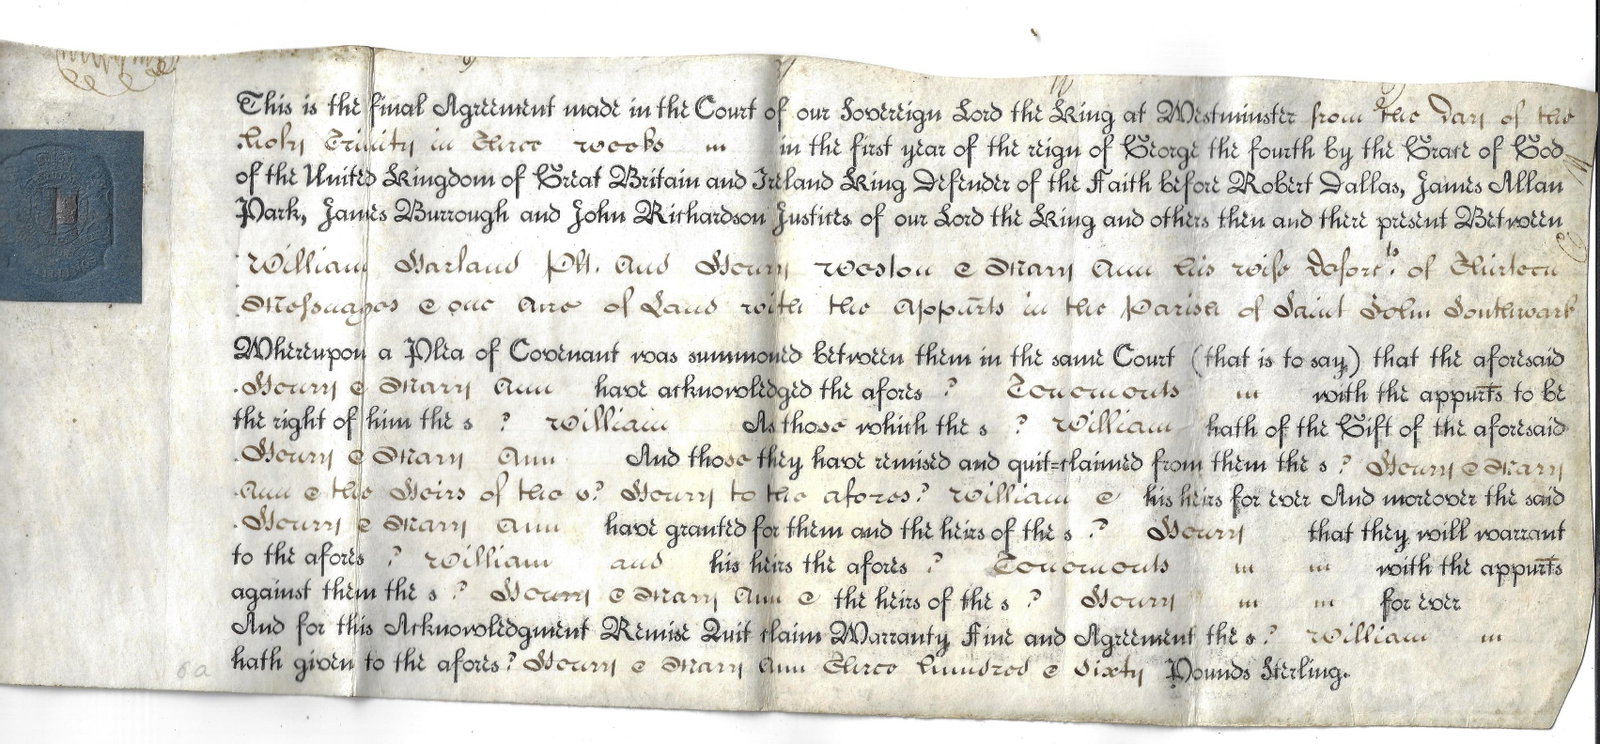 This is the final Agreement made in the Court of our Sovereign Lord the King at Westminster from the Day of the
Holy Trinity in Three weeks in the first year of the reign of George the fourth by the Grace of God
of the United Kingdom of Great Britain and Ireland King Defender of the Faith before Robert Dallas, James Allan
Park, James Burrough and John Richardson Justices of our Lord the King and others then and there present Between
William Garland Plt. And Henry Weston & Mary Ann his wife Deforts of Thirteen
Messuages & one Acre of Land with the Appurts in the Parish of Saint John Southwark
Whereupon a Plea of Covenant was summoned between them in the same Court (that is to say) that the aforesaid
Henry & Mary Ann have acknowledged the afores? Tenements with the appurts to be
the right of him the s? William As those which the s? William hath of the Gift of the aforesaid
Henry & Mary Ann And those they have remised and quit=claimed from them the s? Henry & Mary
Ann & the Heirs of the s? Henry to the afores? William & his heirs for ever And moreover the said
Henry & Mary Ann have granted for them and the heirs of the s? Henry that they will warrant
to the afores? William and his heirs the afores? Tenements with the appurts
against them the s? Henry & Mary Ann & the heirs of the s? Henry for ever
And for this Acknowledgment Remise Quit claim Warranty Fine and Agreement the s? William
hath given to the afores? Henry & Mary Ann Three hundred & sixty Pounds Sterling.
6a